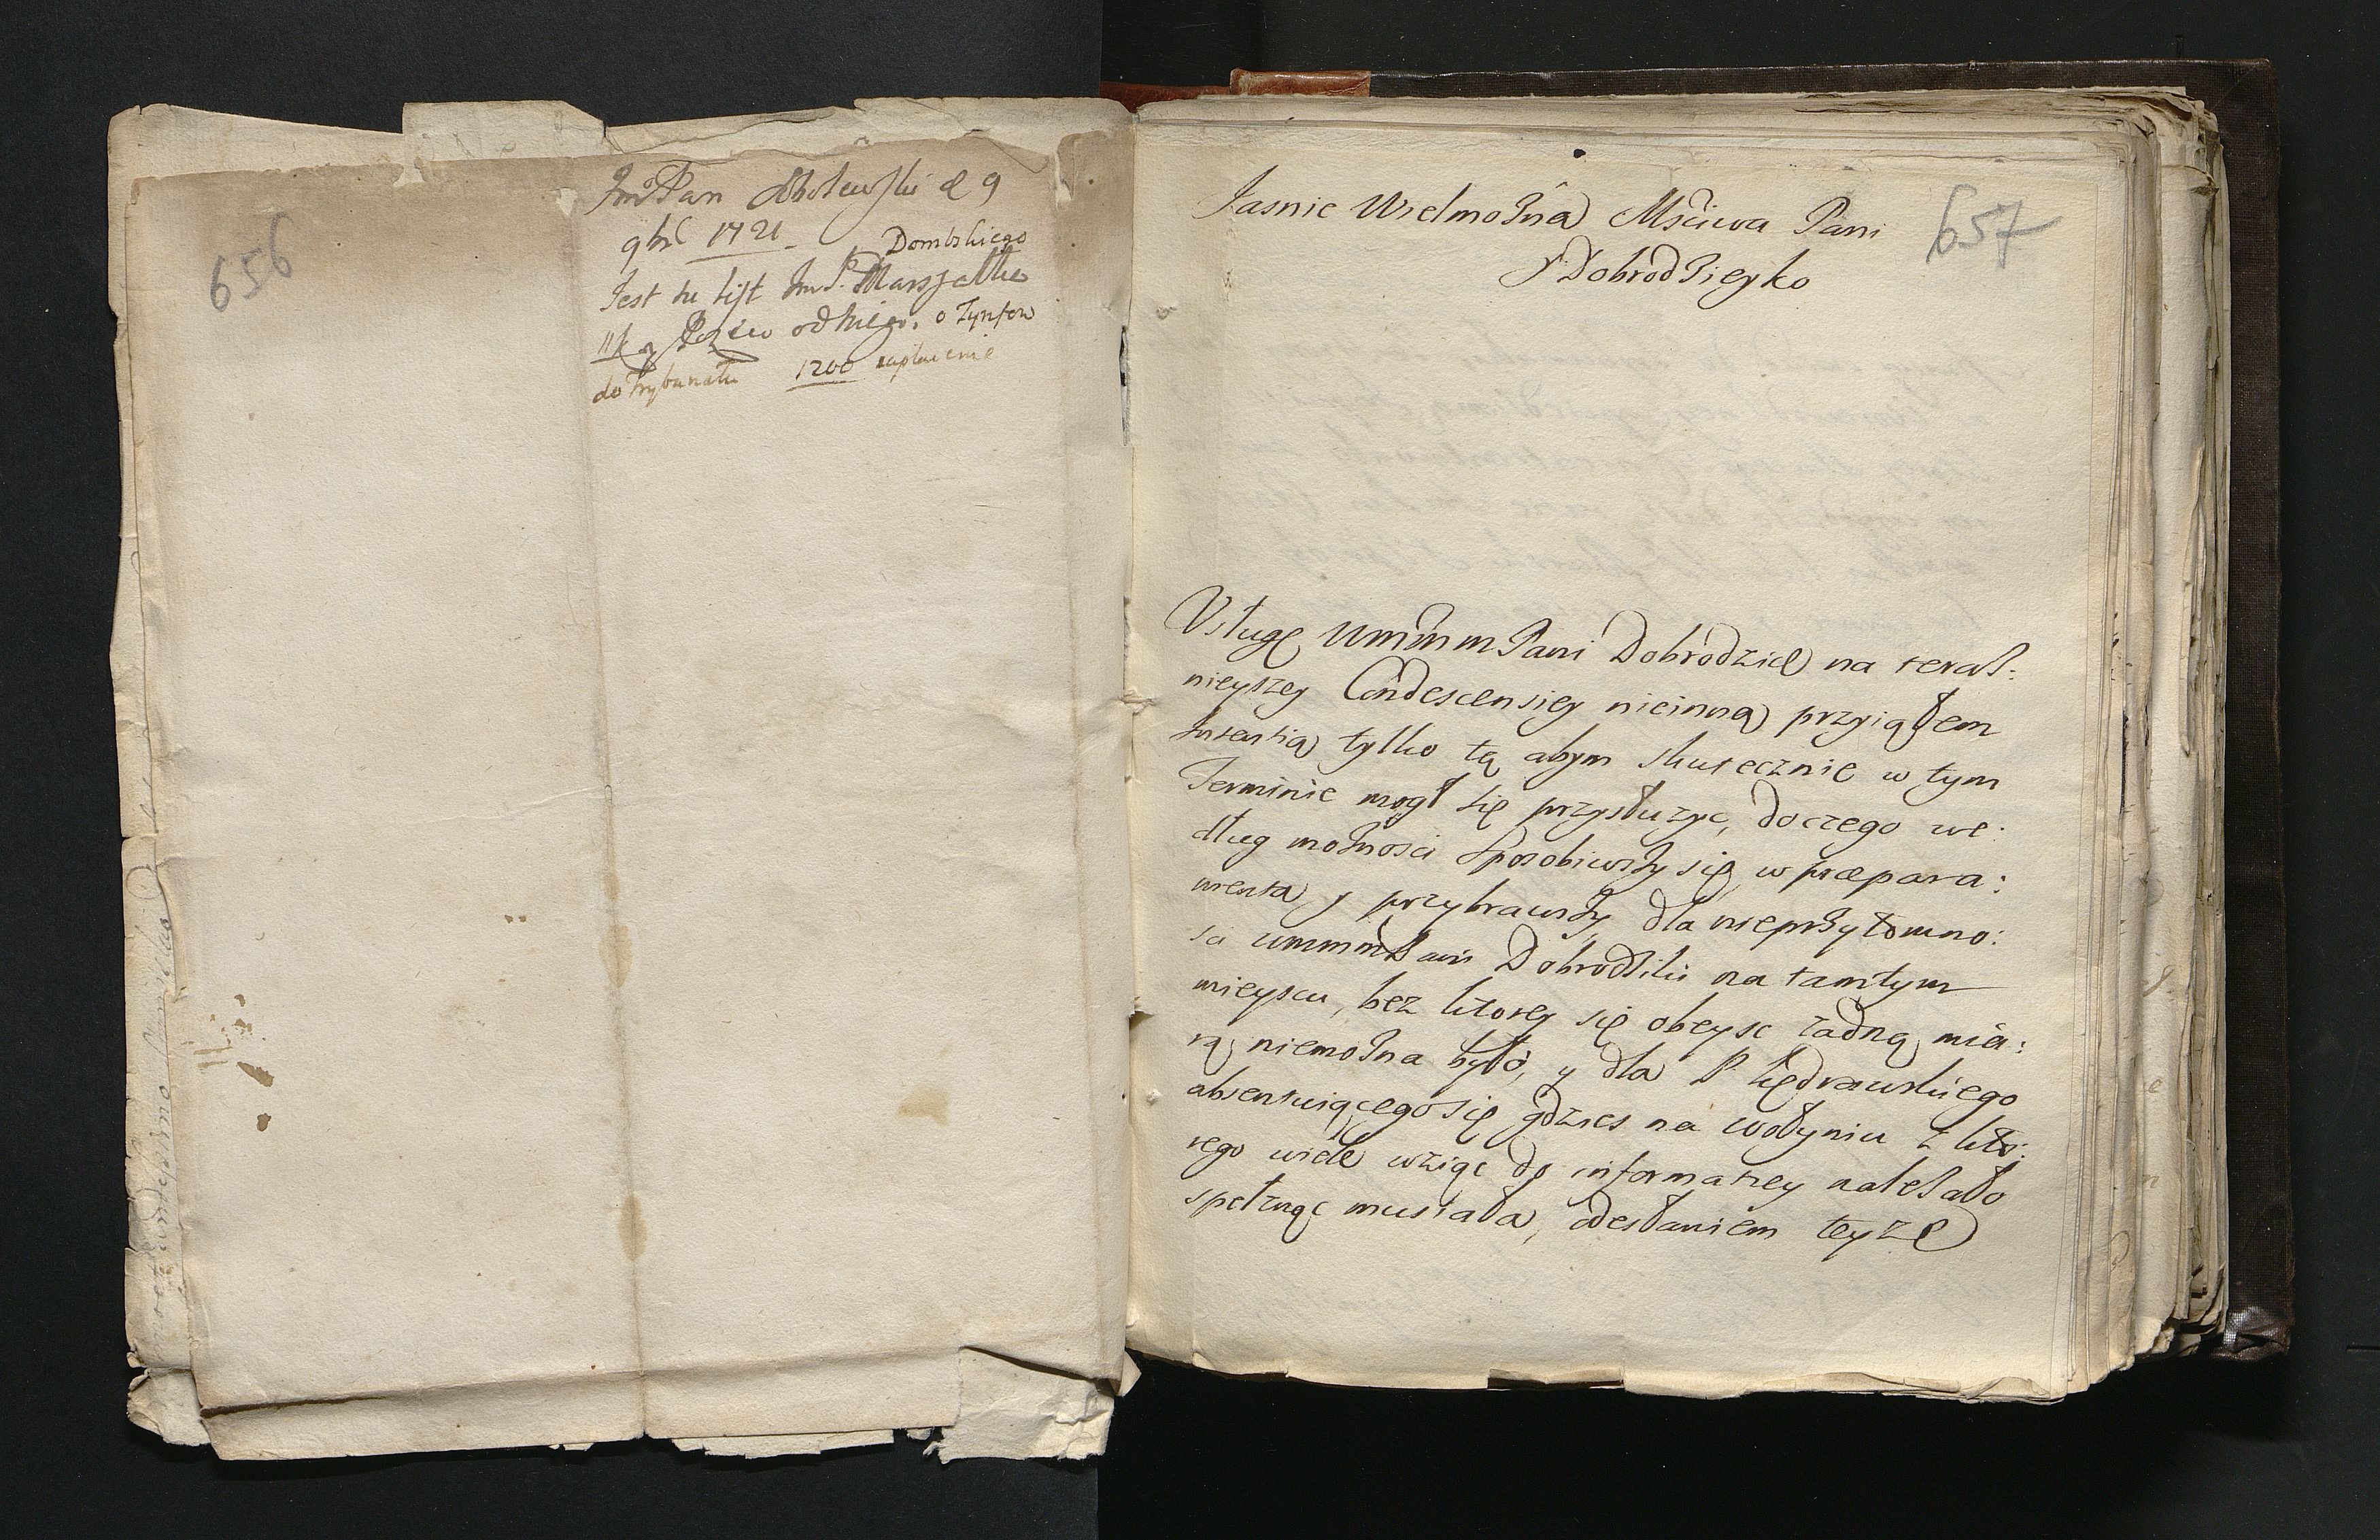 656
JmPan d 9
9br 1721
Dombskiego
Jest tu list Jm P. Marszałka
y Pozew od niego. o Tynfow
do Trybunału 1200 zapłacenie
657
Jasnie Wielmożna Mściwa Pani
y Dobrodzieyko
Usługę WmMm Pani Dobrodzice na teraz:
nieyszey Condescensiey nieinną przyiąłem
Intentią tylko tą abym skutecznie w tym
Terminie mogł się przysłużyc, doczego we:
dług możnosci sposobiwszy się w præpara:
menta y przybrawszy dla nieprzytomno:
sci Wmmm Pani Dobrodziki na tamtym
mieyscu, bez ktorey się obeysc żadną mia:
rą niemożna było, y dla P
absentuiącego się gdzies na Wołyniu z kto:
rego wiele wziąc do informatiey należało
spełznąc musiała, odesłaniem teyże